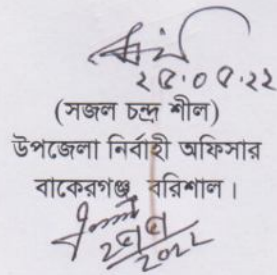 ২৫.০৫.২২
(সজল চন্দ্র শীল)
উপজেলা নির্বাহী অফিসার
বাকেরগঞ্জ, বরিশাল।